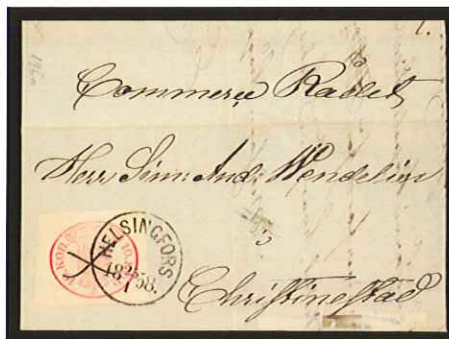 Commerce Rådet
Herr Sim: And: Wendelius
HELSINGFORS
18 25/1 58.
Christinestad